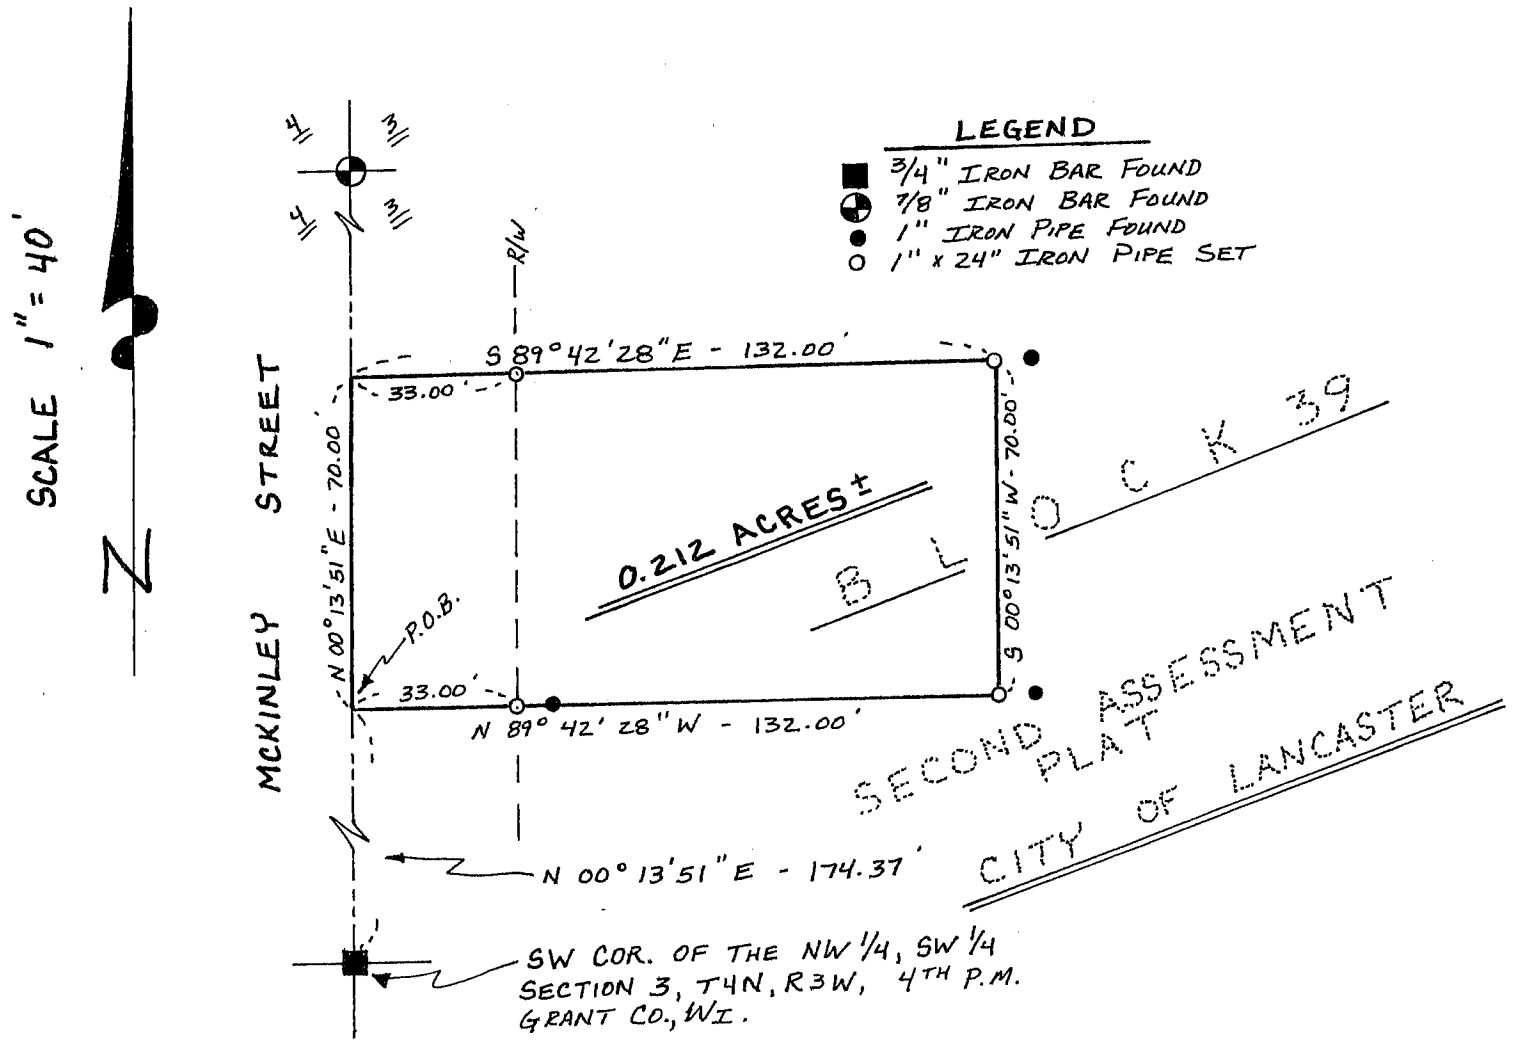 SCALE 1" = 40'
N
4 3
4 3
LEGEND
3/4" IRON BAR FOUND
7/8" IRON BAR FOUND
1" IRON PIPE FOUND
1" x 24" IRON PIPE SET
R/W
S 89° 42' 28" E - 132.00'
33.00'
MCKINLEY STREET
N 00° 13' 51" E - 70.00
S 00° 13' 51" W - 70.00'
0.212 ACRES ±
BLOCK 39
P.O.B.
33.00'
N 89° 42' 28" W - 132.00'
SECOND ASSESSMENT
PLAT
CITY OF LANCASTER
N 00° 13' 51" E - 174.37'
SW COR. OF THE NW 1/4, SW 1/4
SECTION 3, T4N, R3W, 4TH P.M.
GRANT CO., WI.